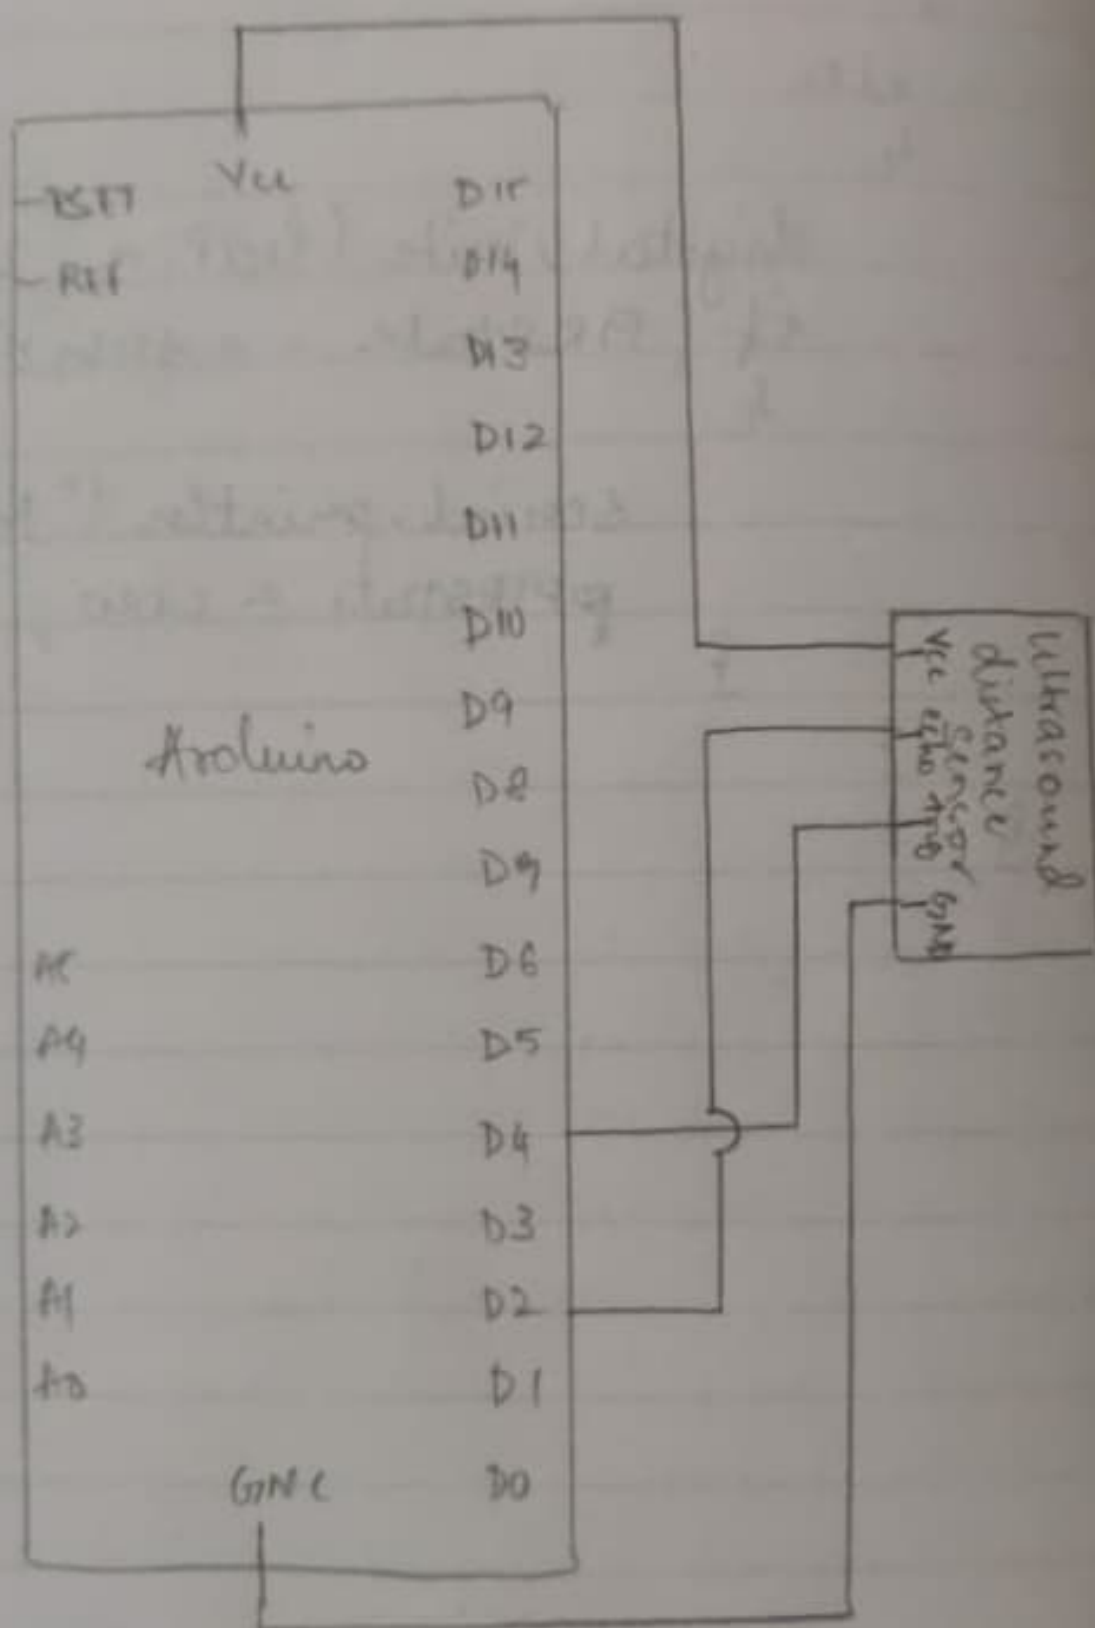 Vcc
RSET
REF
D15
D14
D13
D12
D11
D10
D9
D8
D6
D5
D4
D3
D2
D1
D0
Arduino
A5
A4
A3
A2
A1
A0
Ultrasound
distance
Sensor
Vcc echo trig GND